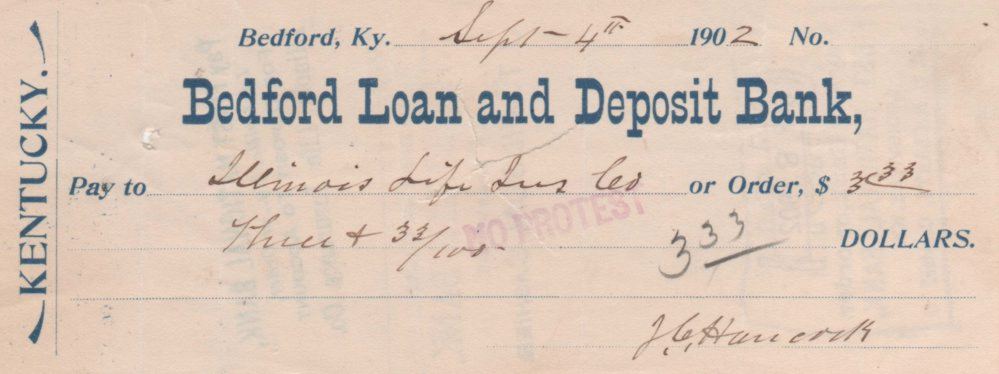 Bedford, Ky. Sept 4th 1902 No.
KENTUCKY.
Bedford Loan and Deposit Bank,
Pay to Illinois Life Ins Co or Order, $ 3 33
NO PROTEST
Three & 33/100 3 33 DOLLARS.
J.C. Hancock